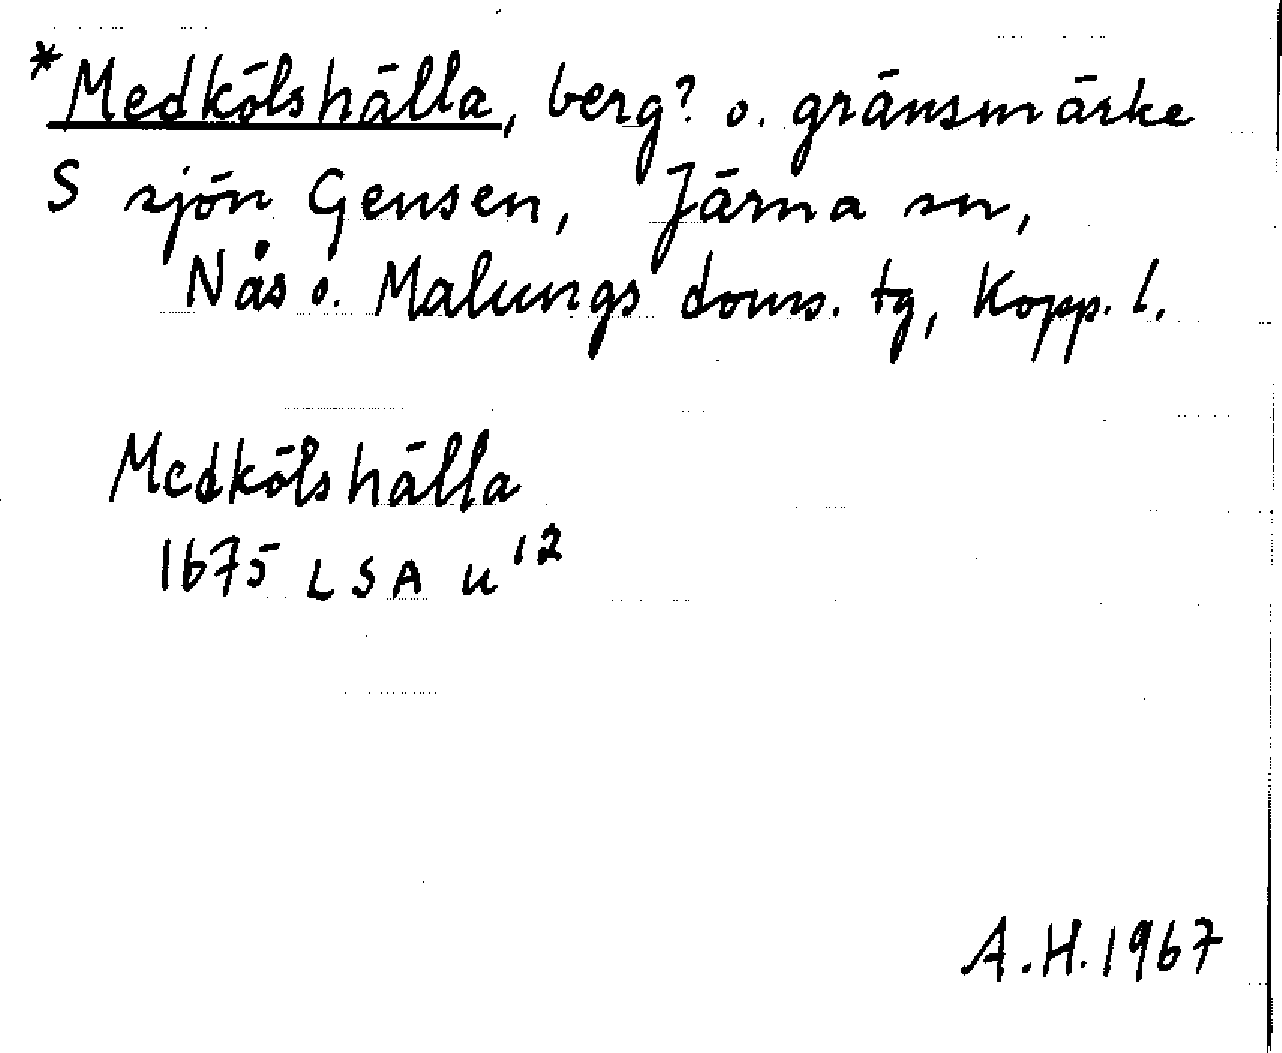 *Medkölshälla, berg? o. gränsmärke
S sjön Gensen, Järna sn,
Nås o. Malungs doms. tg, Kopp. l.
Medkölshälla
1675 LSA u 12
A.H. 1967